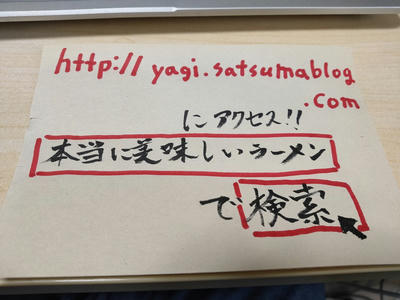 http://yagi.satsumablog
.com
にアクセス!!
本当に美味しいラーメン
で検索